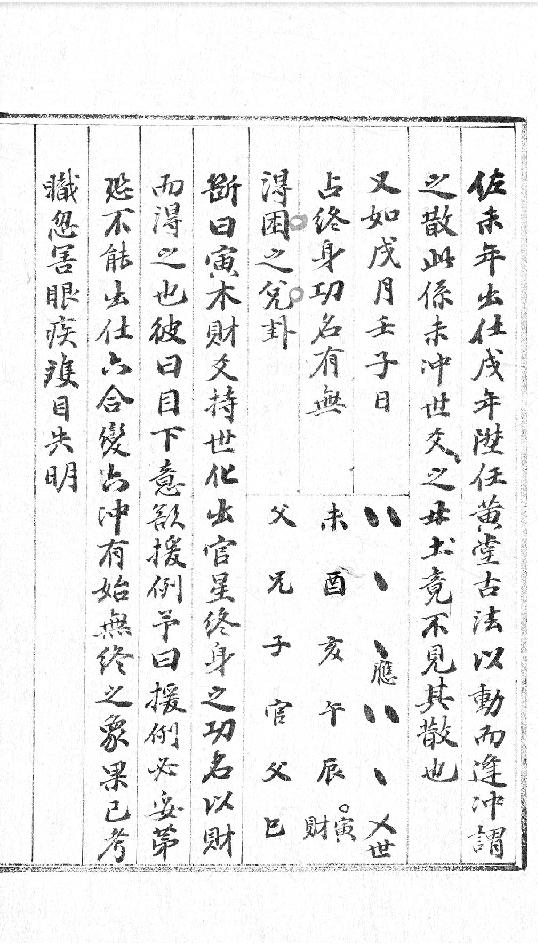 佐未年出仕戌年陞任黄堂古法以動而逢冲謂
之散此係未冲世爻之丑土竟不見其散也
又如戌月壬子日
占終身功名有無
得困之兌卦
應
世
未酉亥午辰寅
財
父兄子官父巳
斷曰寅木財爻持世化出官星終身之功名以財
而得之也彼曰目下意欲援例予曰援例必妥第
恐不能出仕六合變六冲有始無終之象果已考
職忽害眼疾雙目失明